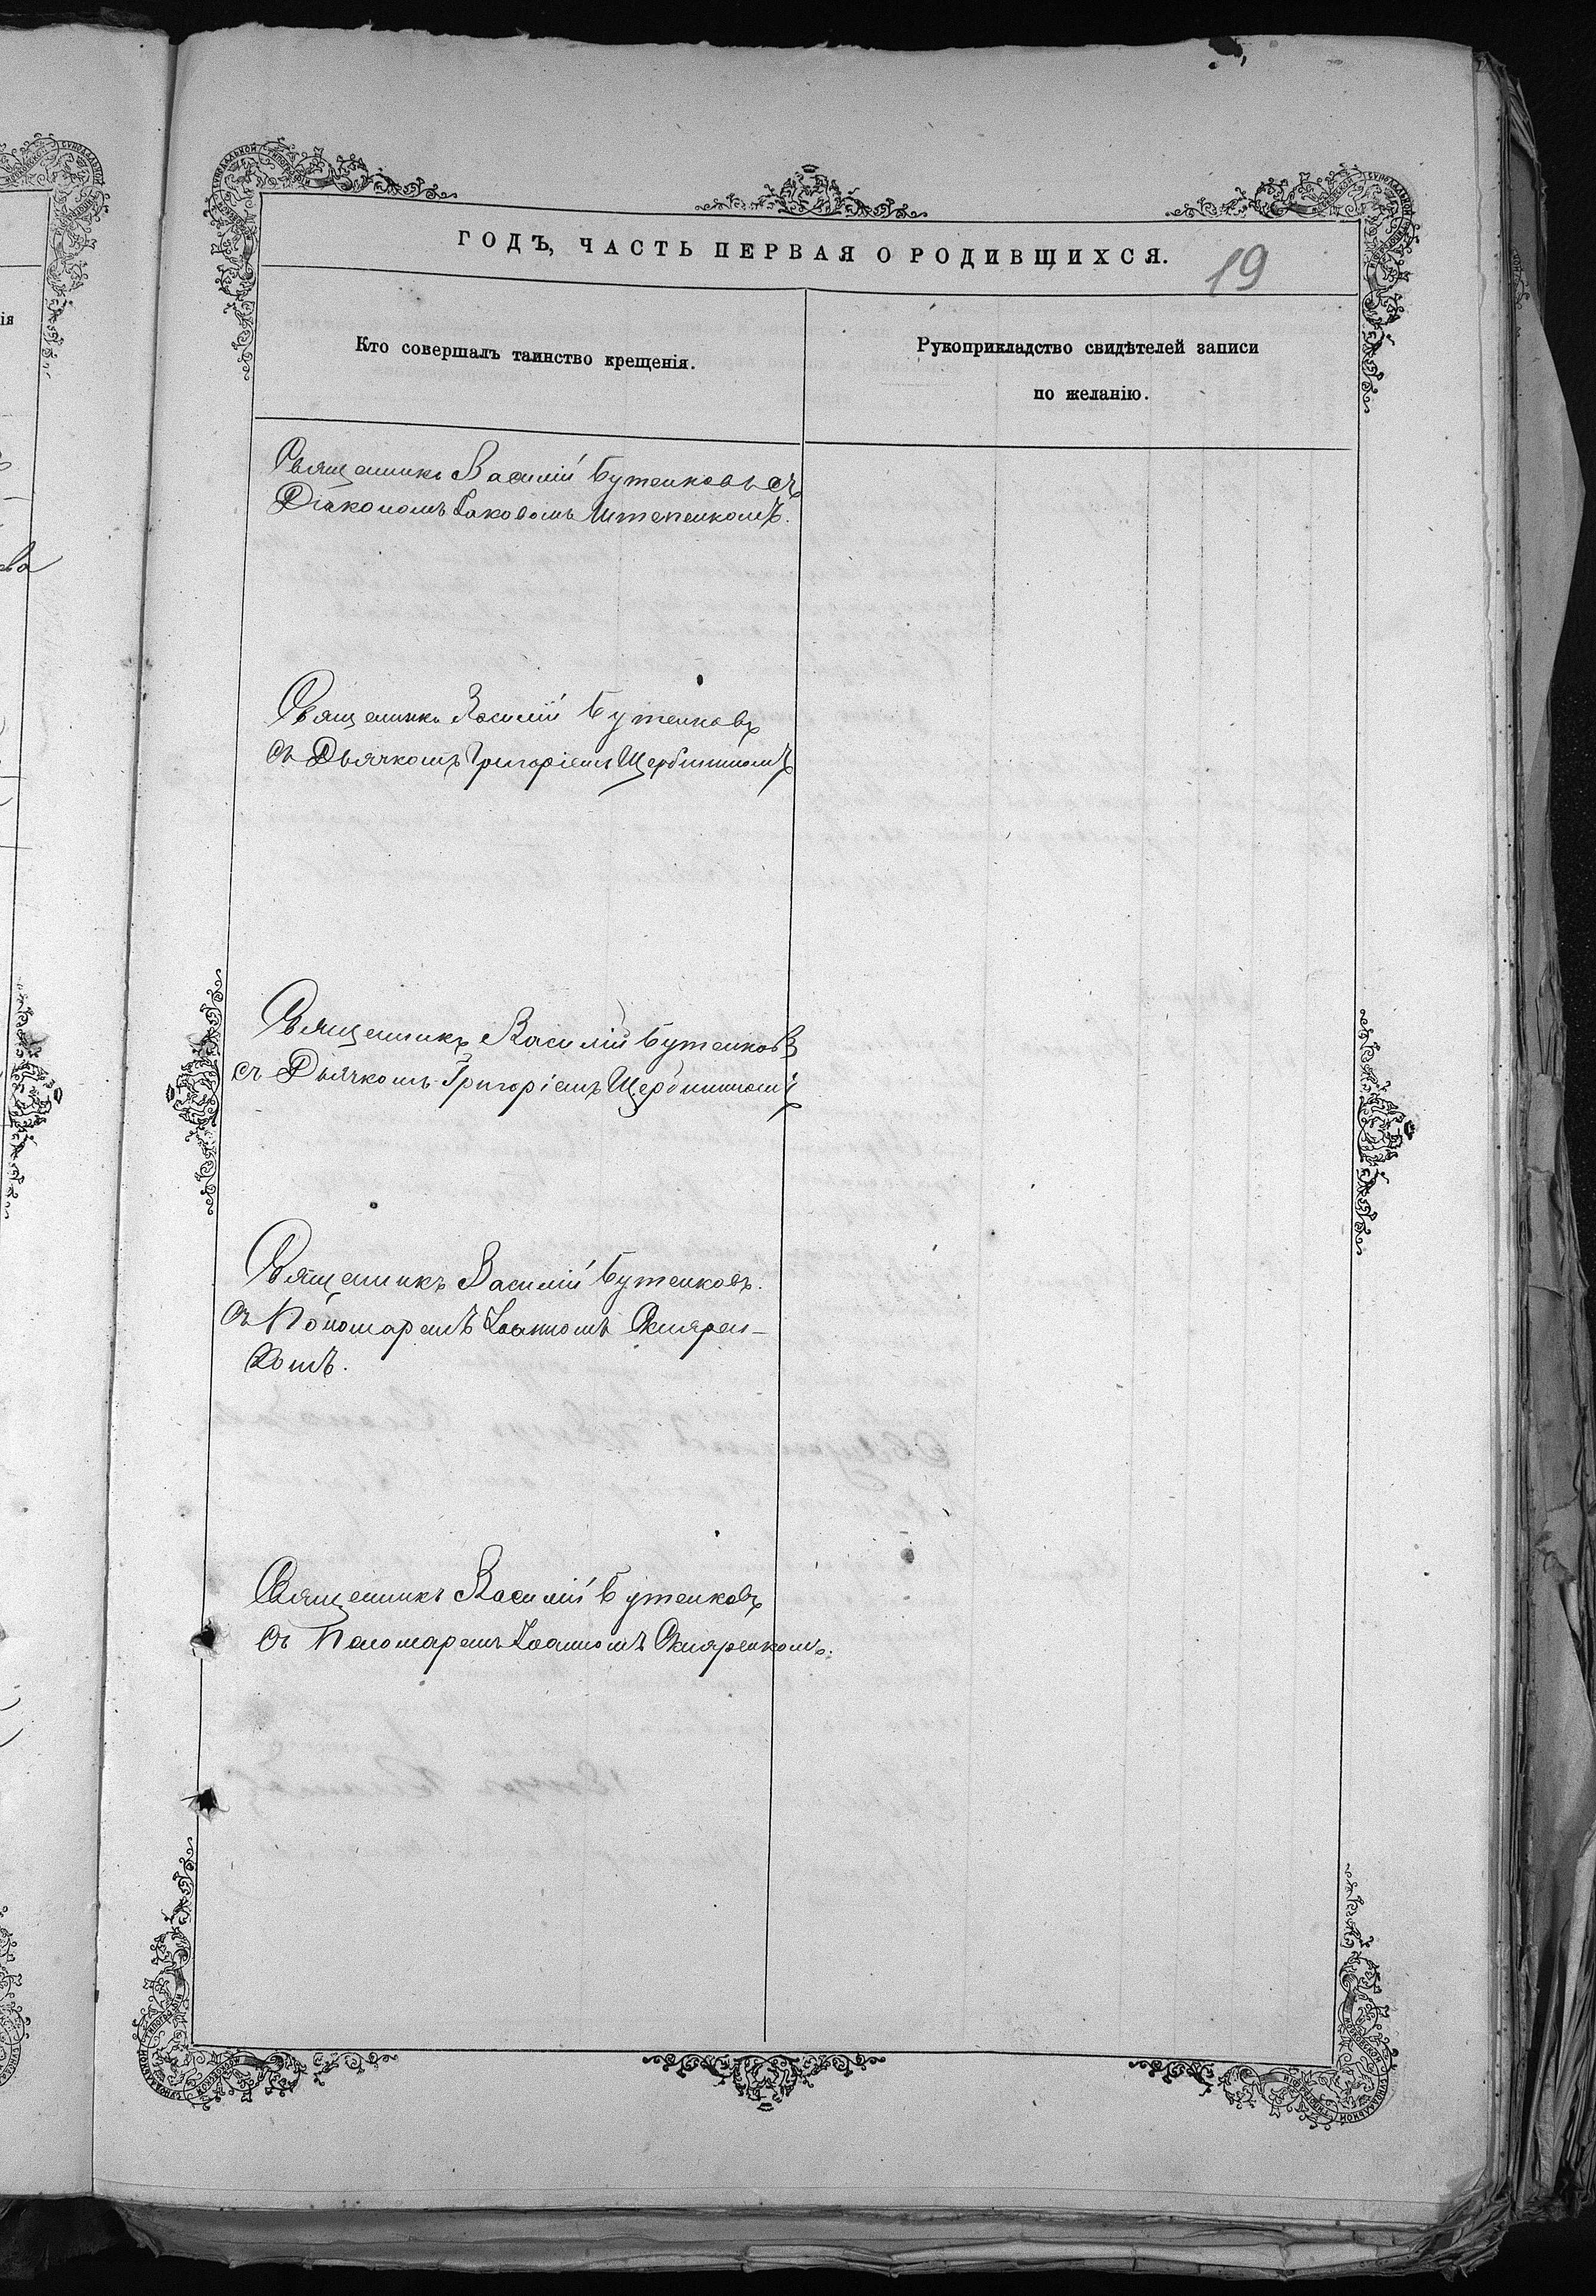 ГОДЪ, ЧАСТЬ ПЕРВАЯ О РОДИВШИХСЯ.
19
Кто совершалъ таинство крещенія.
Рукоприкладство свидѣтелей записи
по желанію.
Священникъ Василій Бутенковъ съ
Діакономъ Іаковомъ Штепенкомъ.
Священникъ Василій Бутенковъ
съ Дьячкомъ Григоріемъ Щербининымъ
Священникъ Василій Бутенковъ
съ Дьячкомъ Григоріемъ Щербининымъ
Священникъ Василій Бутенковъ.
съ Пономаремъ Іоанномъ Скларен-
комъ.
Священникъ Василій Бутенковъ
съ Пономаремъ Іоанномъ Скляренкомъ.